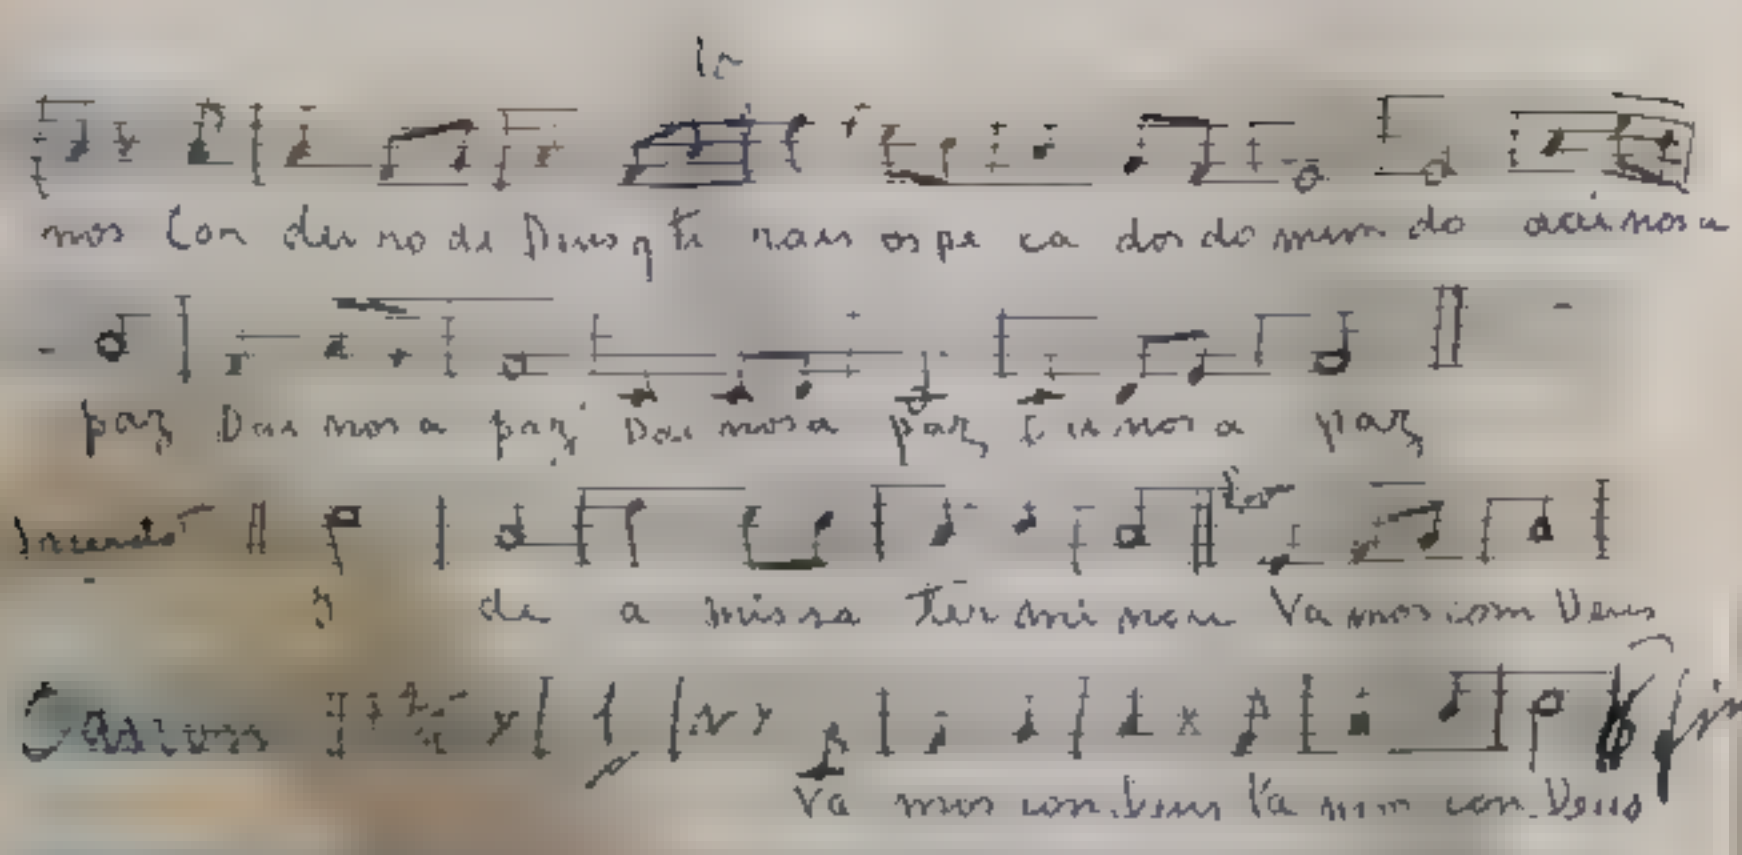 mos Cor dei ro de Deus q ti rais os pe ca dos do mun do dai nos a
paz Dai nos a paz Dai nos a paz Dai nos a paz
de a missa Ter mi nou Va mos com Deus
Va mos com Deus Va mos com Deus